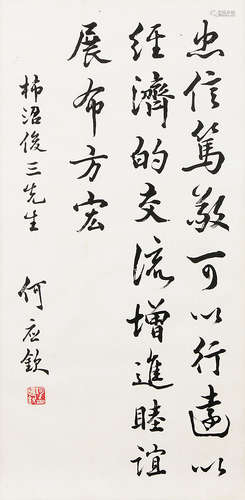 忠信篤敬可以行遠以
經濟的交流增進睦誼
展布方宏
柿沼俊三先生
何应欽